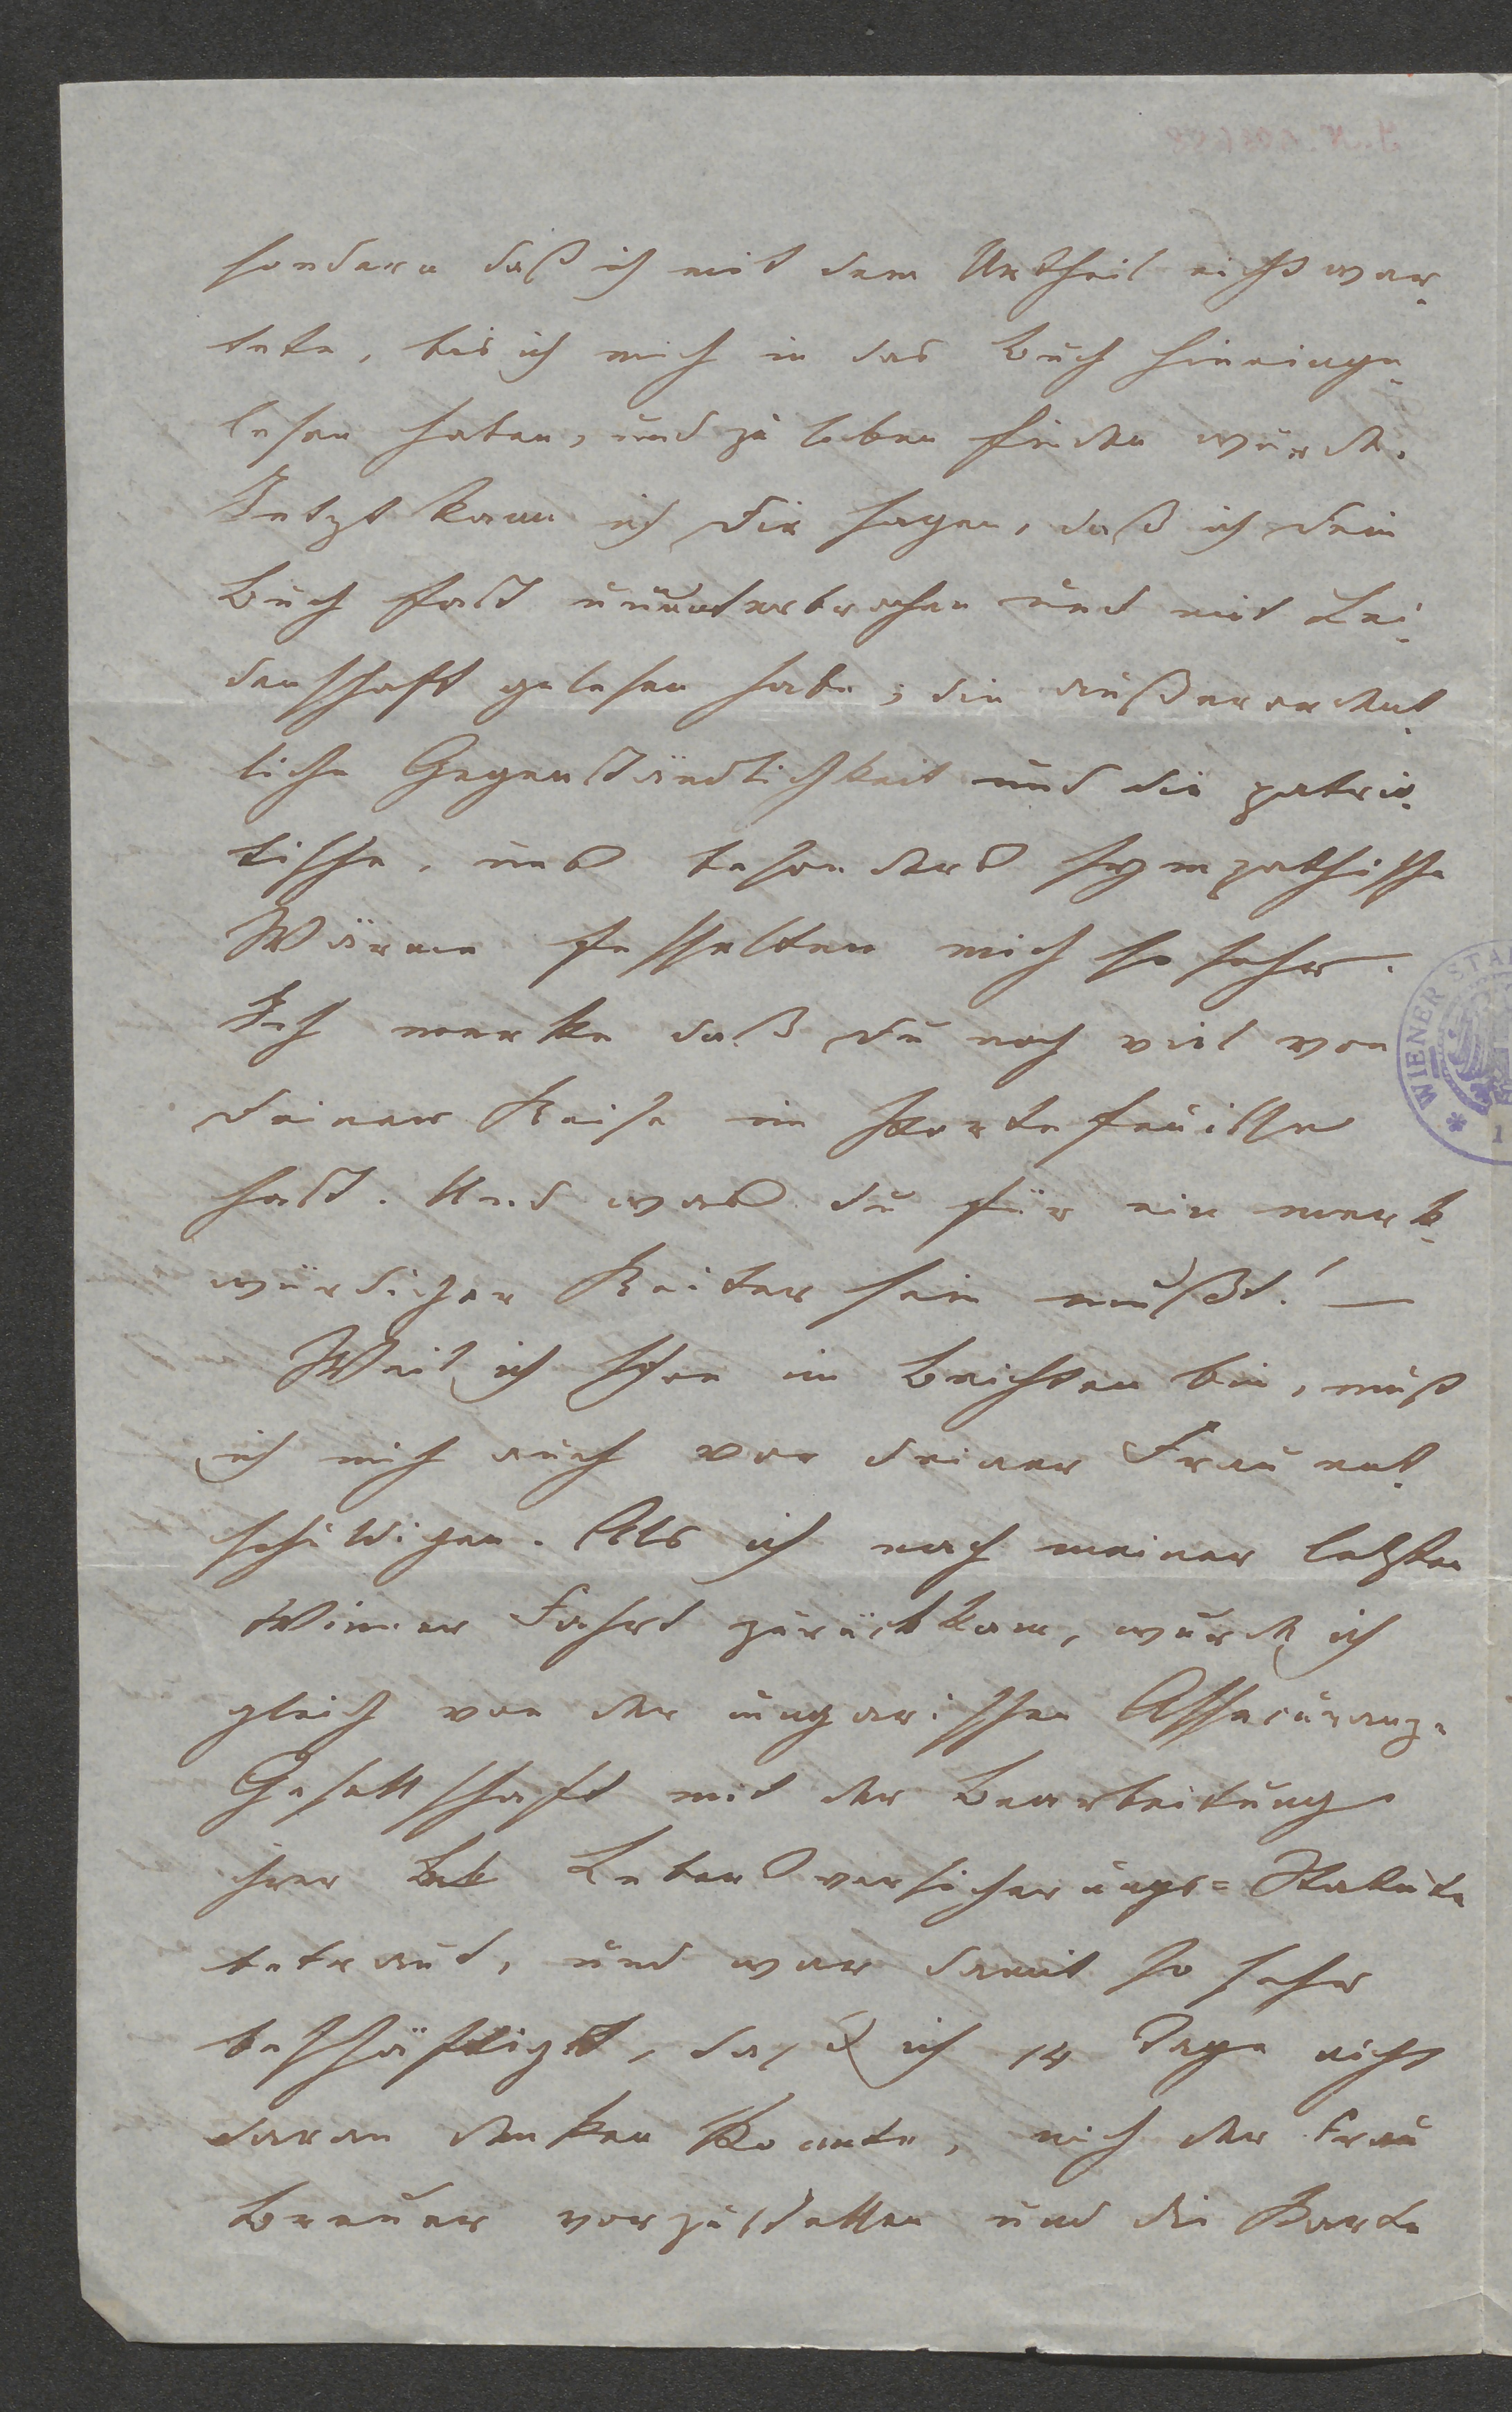 sondern daß ich mit dem Urtheil nicht war-
tete, bis ich mich in das Buch hineinge-
lesen haben, und zu loben finden würde.
Jetzt kann ich Dir sagen, daß ich Dein
Buch fast ununterbrochen und mit Lei-
denschaft gelesen habe; die außerordent-
liche Gegenständlichkeit und die patrio-
tische, uns besonders sympathische
Wärme fesselten mich so sehr.
Ich merke daß Du noch viel von
Deiner Reise im Portefeuille
hast. Und was Du für ein merk-
würdiger Reiter sein mußt! —
Weil ich schon im Beichten bin, muß
ich mich auch vor Deiner Frau ent-
schuldigen. Als ich nach meiner letzten
Wiener Fahrt zurückkam, wurde ich
gleich von der ungarischen Assecuranz-
Gesellschaft mit der Bearbeitung
ihrer Lebensversicherungs=Statute
betraut, und war damit so sehr
beschäftigt, daß ich 14 Tage nicht
daran denken konnte, mich der Frau
Breuer vorzustellen und die Karte
WIENER STA
1